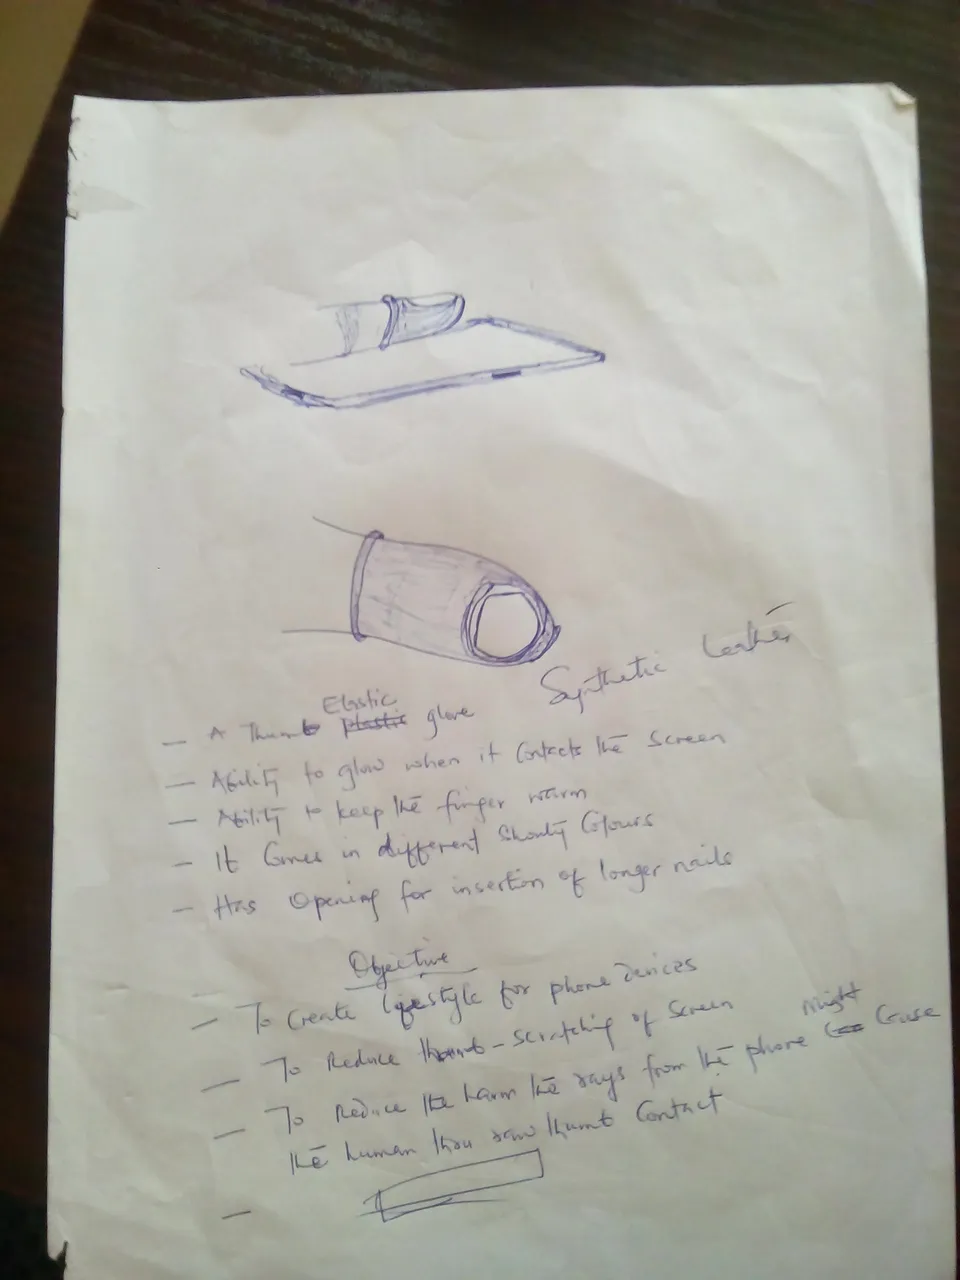 Synthetic Leather
Elastic
— A Thumb plastic glove
— Ability to glow when it contacts the screen
— Ability to keep the finger warm
— It Comes in different Colours
— Has Opening for insertion of longer nails
Objective
— To Create lifestyle for phone devices
— To Reduce thumb-scratching of Screen
might
— To Reduce the harm the rays from the phone Cause
the human thru raw thumb Contact
—